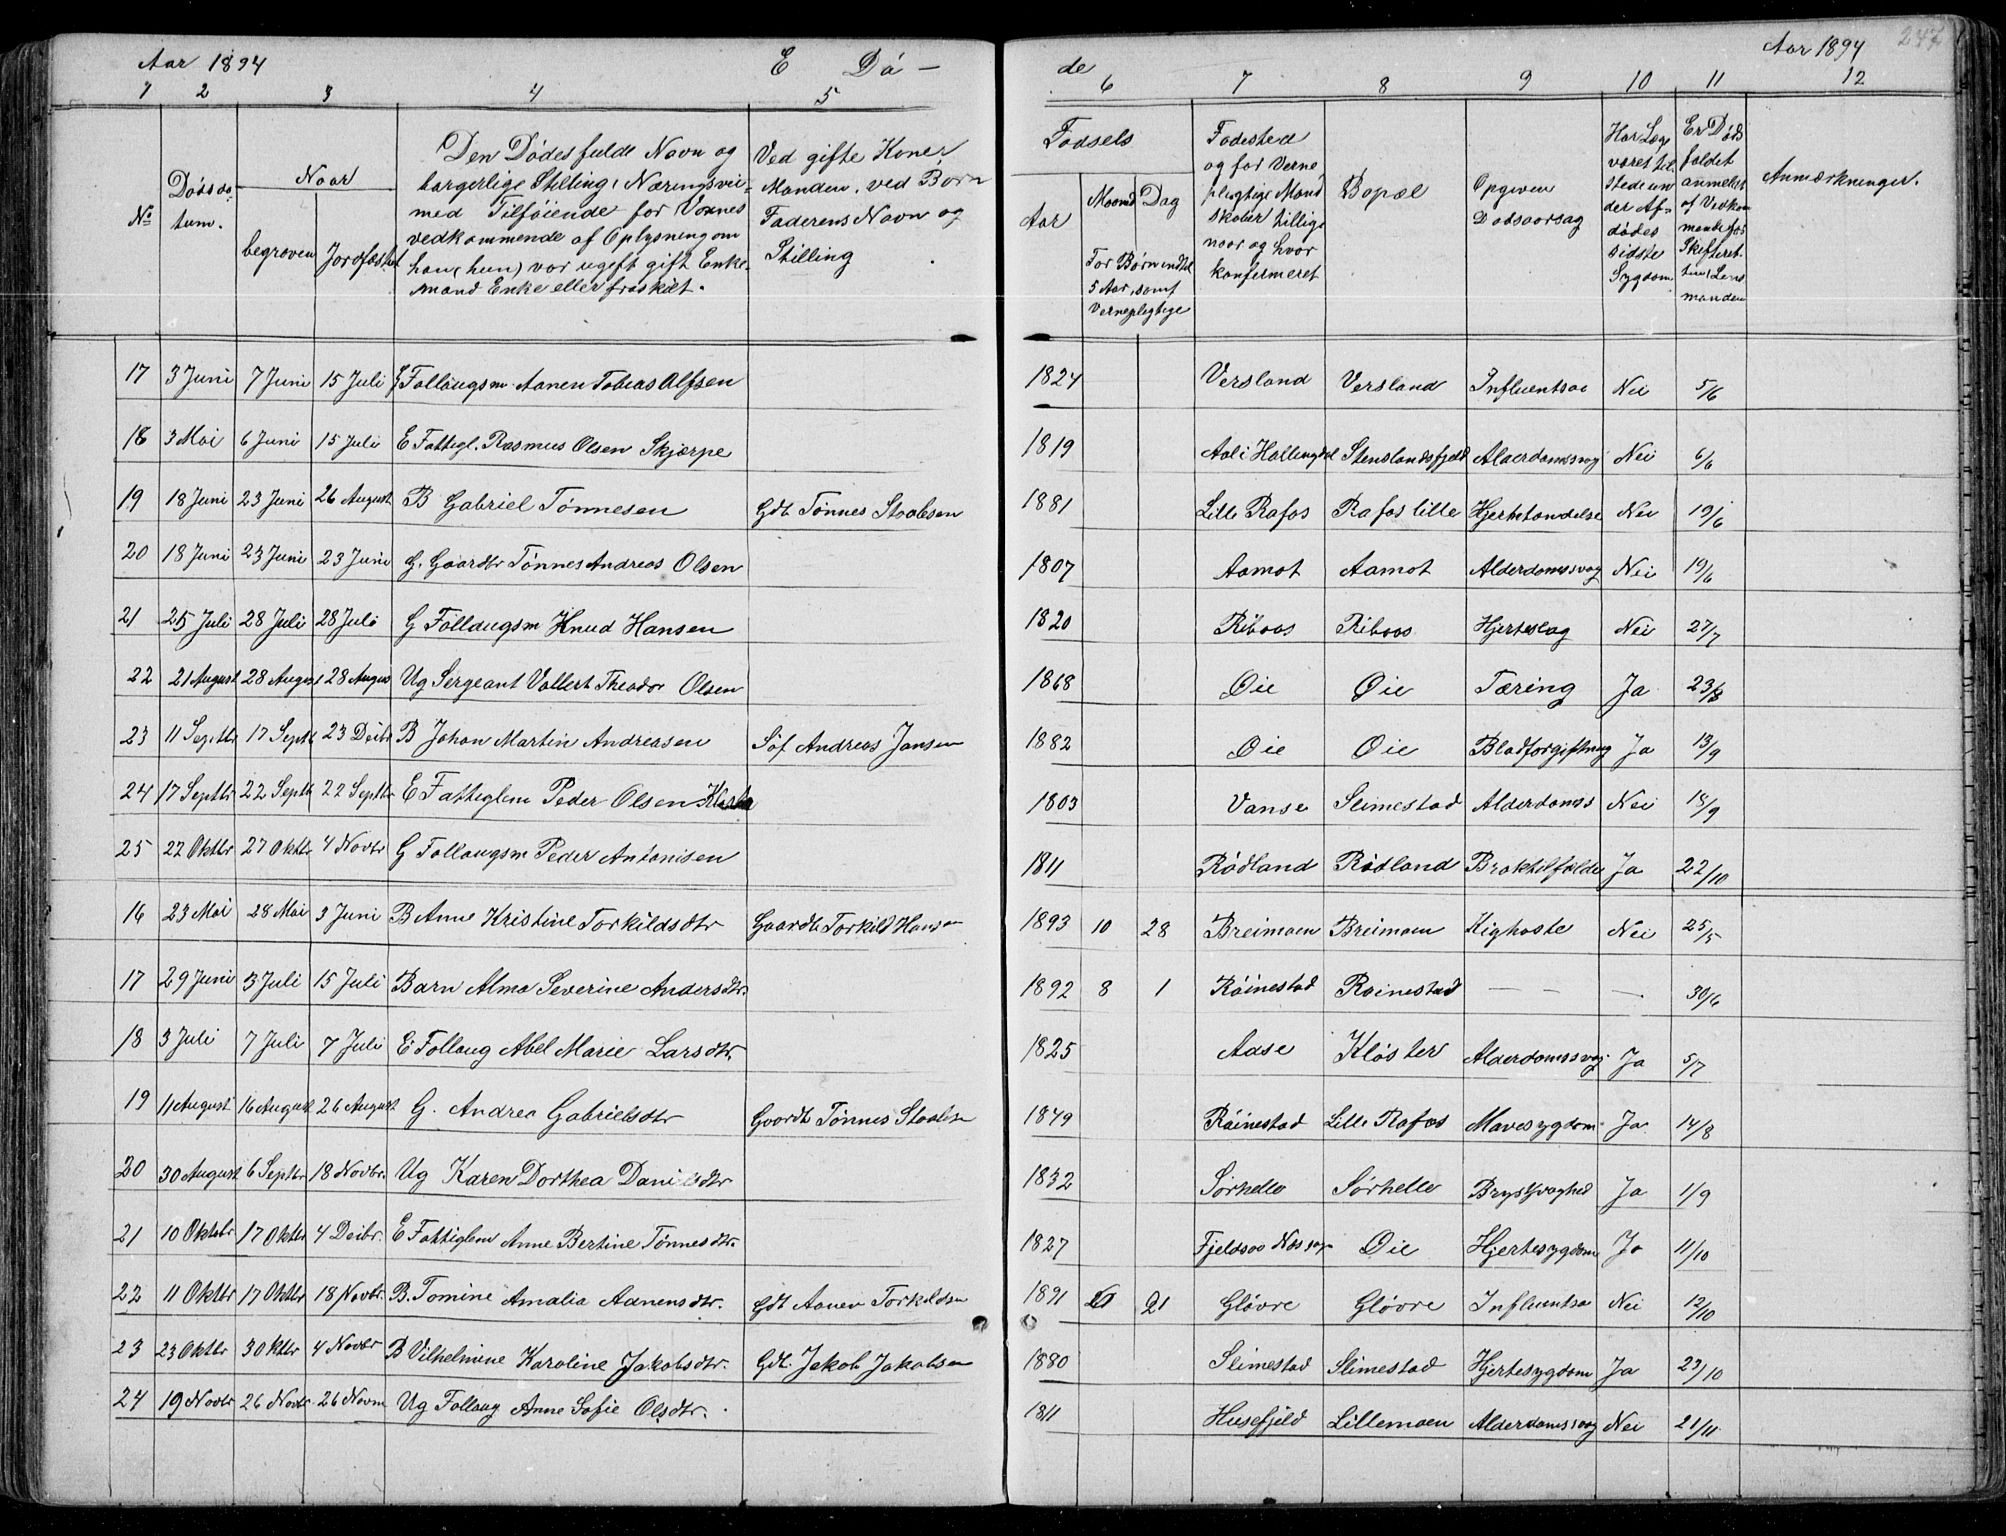 Aar 1894 E Dö-
1 2 3 4 5
No
Dödsda-
tum.
Naar
begraven
Jordfæstet
Den Dödes fulde Navn og
borgerlige Stilling, Næringsvei
med Tilföiende for Voxnes
vedkommende af Oplysning om
han (hun) var ugift gift Enke-
mand Enke eller fraskilt.
Ved gifte Koner
Manden, ved Börn
Faderens Navn og
Stilling
17 3 Juni 7 Juni 15 Juli Follaugsm. Aanen Tobias Alfsen
18 3 Mai 6 Juni 15 Juli E Fattigl. Rasmus Olsen Skjærpe
19 18 Juni 23 Juni 26 August B Gabriel Tönnesen Gdb Tönnes Staalesen
20 18 Juni 23 Juni 23 Juni G. Gaardbr Tönnes Andreas Olsen
21 25 Juli 28 Juli 28 Juli G Follaugsm Knud Hansen
22 21 August 28 August 28 August Ug Sergeant Vollert Theodor Olsen
23 11 Septbr 17 Septb 23 Decbr B Johan Martin Andreasen Söf Andreas Jansen
24 17 Septbr 22 Septb 22 Septbr E Fattiglem Peder Olsen
25 22 Oktbr 27 Oktbr 4 Novbr G Follaugsm Peder Antonisen
16 23 Mai 28 Mai 3 Juni B Anne Kristine Torkildsdtr Gaardb Torkild Hansen
17 29 Juni 3 Juli 15 Juli Barn Alma Severine Andersdtr.
18 3 Juli 7 Juli 7 Juli E Follaug Abel Marie Larsdtr.
19 11 August 16 August 26 August G. Andrea Gabrielsdtr Gaardb Tönnes Staalesen
20 30 August 6 Septbr 18 Novbr. Ug Karen Dorthea Danielsdtr
21 10 Oktobr 17 Oktbr 4 Decbr. E Fattiglem Anne Bertine Tönnesdtr.
22 11 Oktbr 17 Oktbr 18 Novbr. B. Tomine Amalia Aanensdtr. Gdb Aanen Torkildsen
23 23 Oktbr 30ktbr 4 Novbr B Vilhelmine Karoline Jakobsdtr. Gdb. Jakob Jakobsen
24 19 Novbr 26 Novbr 26 Novm Ug Follaug Anne Sofie Olsdtr.
de Aar 1894 247
6 7 8 9 10 11 12
Födsels
Aar
Maaned Dag
For Börn indtil
5 Aar, samt
Vernepligtige
Födested
og for Verne
pligtige Mand
skaber tillige
naar og hvor
konfermeret
Bopæl
Opgiven
Dödsaarsag
Har Læge
været til
stede un
der Af-
dödes
sidste
Sygdom
Er Döds
faldet
anmeldt
af Vedkom
mende for
Skifteret
ten, Lens
manden
Anmærkninger.
1824 Versland Versland Influentsae Nei 5/6
1819 Aal i Hallingdal Stenslandsfjeld Alderdomssvag Nei 6/6
1881 Lille Rafos Rafos lille Hjertbetændelse Nei 19/6
1807 Aamot Aamot Alderdomssvag Nei 19/6
1820 Riboas Riboas Hjerteslag Nei 27/7
1868 Öie Öie Tæring Ja 23/8
1882 Öie Öie Blodforgiftning Ja 13/9
1803 Vanse Slimestad Alderdomss Nei 18/9
1811 Rödland Rödland Braktilfælde Ja 22/10
1893 10 28 Breimoen Breimoen Kighoste Nei 25/5
1892 8 1 Röinestad Röinestad — — — 30/6
1825 Aase Klöster Alderdomssvag Ja 5/7
1849 Röinestad Lille Rafos Mavesygdom Ja 14/8
1832 Sörhelle Sörhelle Brystsvaghed Ja 1/9
1827 Fjeldsaa Öie Hjertesygdom Ja 11/10
1891 21 Glövre Glövre Influentsa Nei 12/10
1880 Slimestad Slimestad Hjertesygdom Ja 23/10
1811 Husefjeld Lillemoen Alderdomssvag Nei 21/11